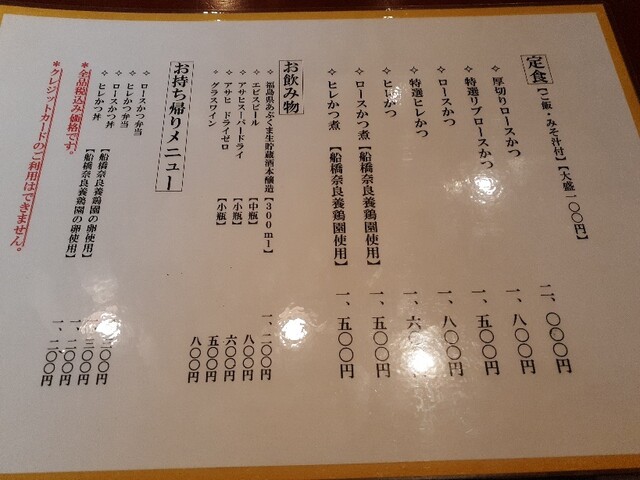 定食【ご飯・みそ汁付】【大盛一〇〇円】
✧ 厚切りロースかつ 二、〇〇〇円
✧ 特選リブロースかつ 一、八〇〇円
✧ ロースかつ 一、五〇〇円
✧ 特選ヒレかつ 一、八〇〇円
✧ ヒレかつ 一、六〇〇円
✧ ロースかつ煮【船橋奈良養鶏園使用】 一、五〇〇円
✧ ヒレかつ煮【船橋奈良養鶏園使用】 一、五〇〇円
お飲み物
✧ 福島県あぶくま生貯蔵酒本醸造【300ml】 一、二〇〇円
✧ エビスビール【中瓶】 八〇〇円
✧ アサヒスーパードライ【小瓶】 六〇〇円
✧ アサヒ ドライゼロ【小瓶】 五〇〇円
✧ グラスワイン 八〇〇円
お持ち帰りメニュー
✧ ロースかつ弁当 〇〇円
✧ ヒレかつ弁当 三〇〇円
✧ ロースかつ丼【船橋奈良養鶏園の卵使用】 一、二〇〇円
✧ ヒレかつ丼【船橋奈良養鶏園の卵使用】 一、二〇〇円
*全品税込み価格です。
*クレジットカードのご利用はできません。